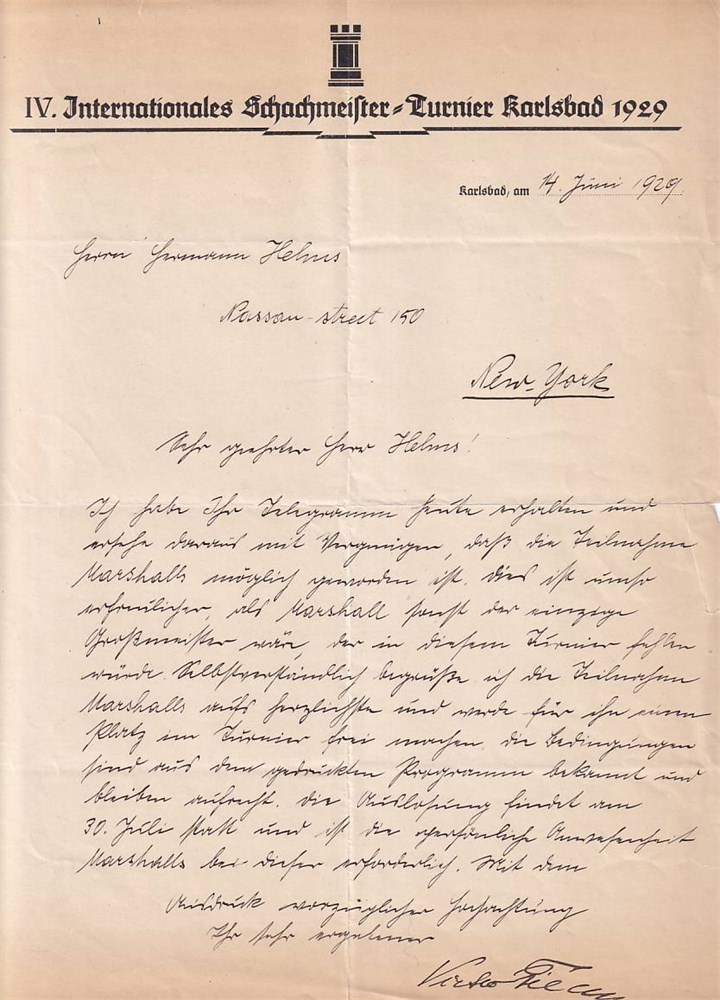 IV. Internationales Schachmeister-Turnier Karlsbad 1929
Karlsbad, am 14. Juni 1929.
Herrn Hermann Helms
Nassau-street 150
New-York
Sehr geehrter Herr Helms!
Ich habe Ihr Telegramm heute erhalten und
ersehe daraus mit Vergnügen, daß die Teilnahme
Marshalls möglich geworden ist. Dies ist umso
erfreulicher, als Marshall sonst der einzige
Großmeister wäre, der in diesem Turnier fehlen
würde. Selbstverständlich begrüße ich die Teilnahme
Marshalls aufs herzlichste und werde für ihn einen
Platz im Turnier frei machen. Die Bedingungen
sind aus dem gedruckten Programm bekannt und
bleiben aufrecht. Die Auslosung findet am
30. Juli statt und ist die persönliche Anwesenheit
Marshalls bei dieser erforderlich. Mit dem
Ausdruck vorzüglicher Hochachtung
Ihr sehr ergebener
Victor Tietz